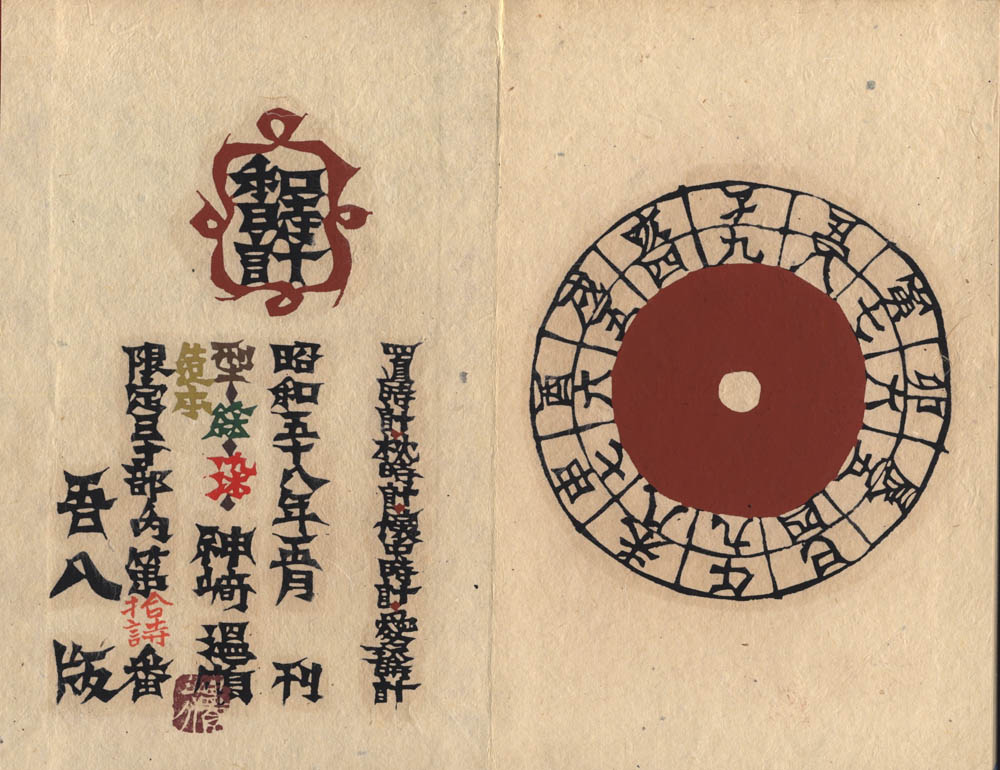 子 丑 寅 卯 辰 巳 午 未 申 酉 戌 亥
九 八 七 六 五 四 九 八 七 六 五 四
和時計
置時計・枕時計・懐中時計・愛
昭和五十八年正月 刊
型・絵・染・神崎温順
造本
限定 部内第拾 番
吾八版